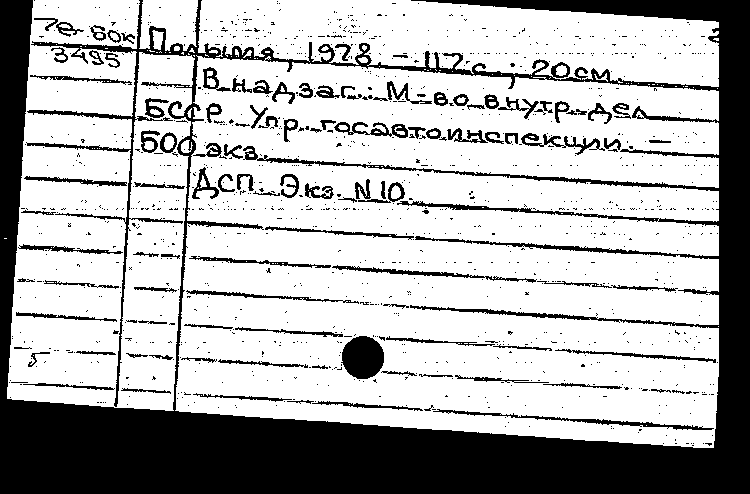 2
7ег бок
3495
Полымя, 1978. – 117 с.; 20 см.
В надзаг.: М-во внутр. дел
БССР. Упр. госавтоинспекции. –
500 экз.
ДСП. Экз. N 10.